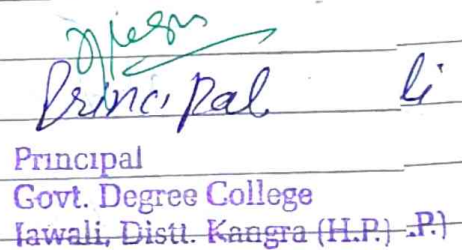 Principal li
Principal
Govt. Degree College
Jawali, Distt. Kangra (H.P.) .P.)